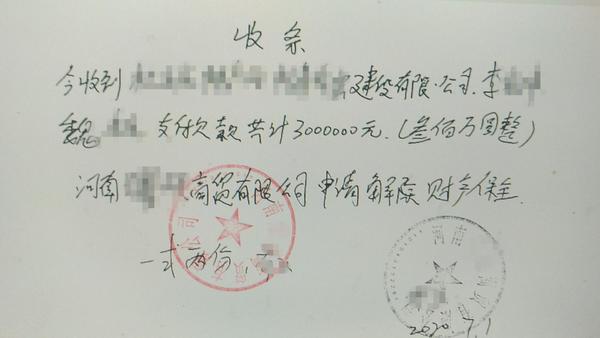 收条
今收到 建设有限公司.李
魏 支付欠款共计3000000元.(叁佰万圆整)
河南 商贸有限公司申请解除财产保全
一式两份.
河南
2020.7.1